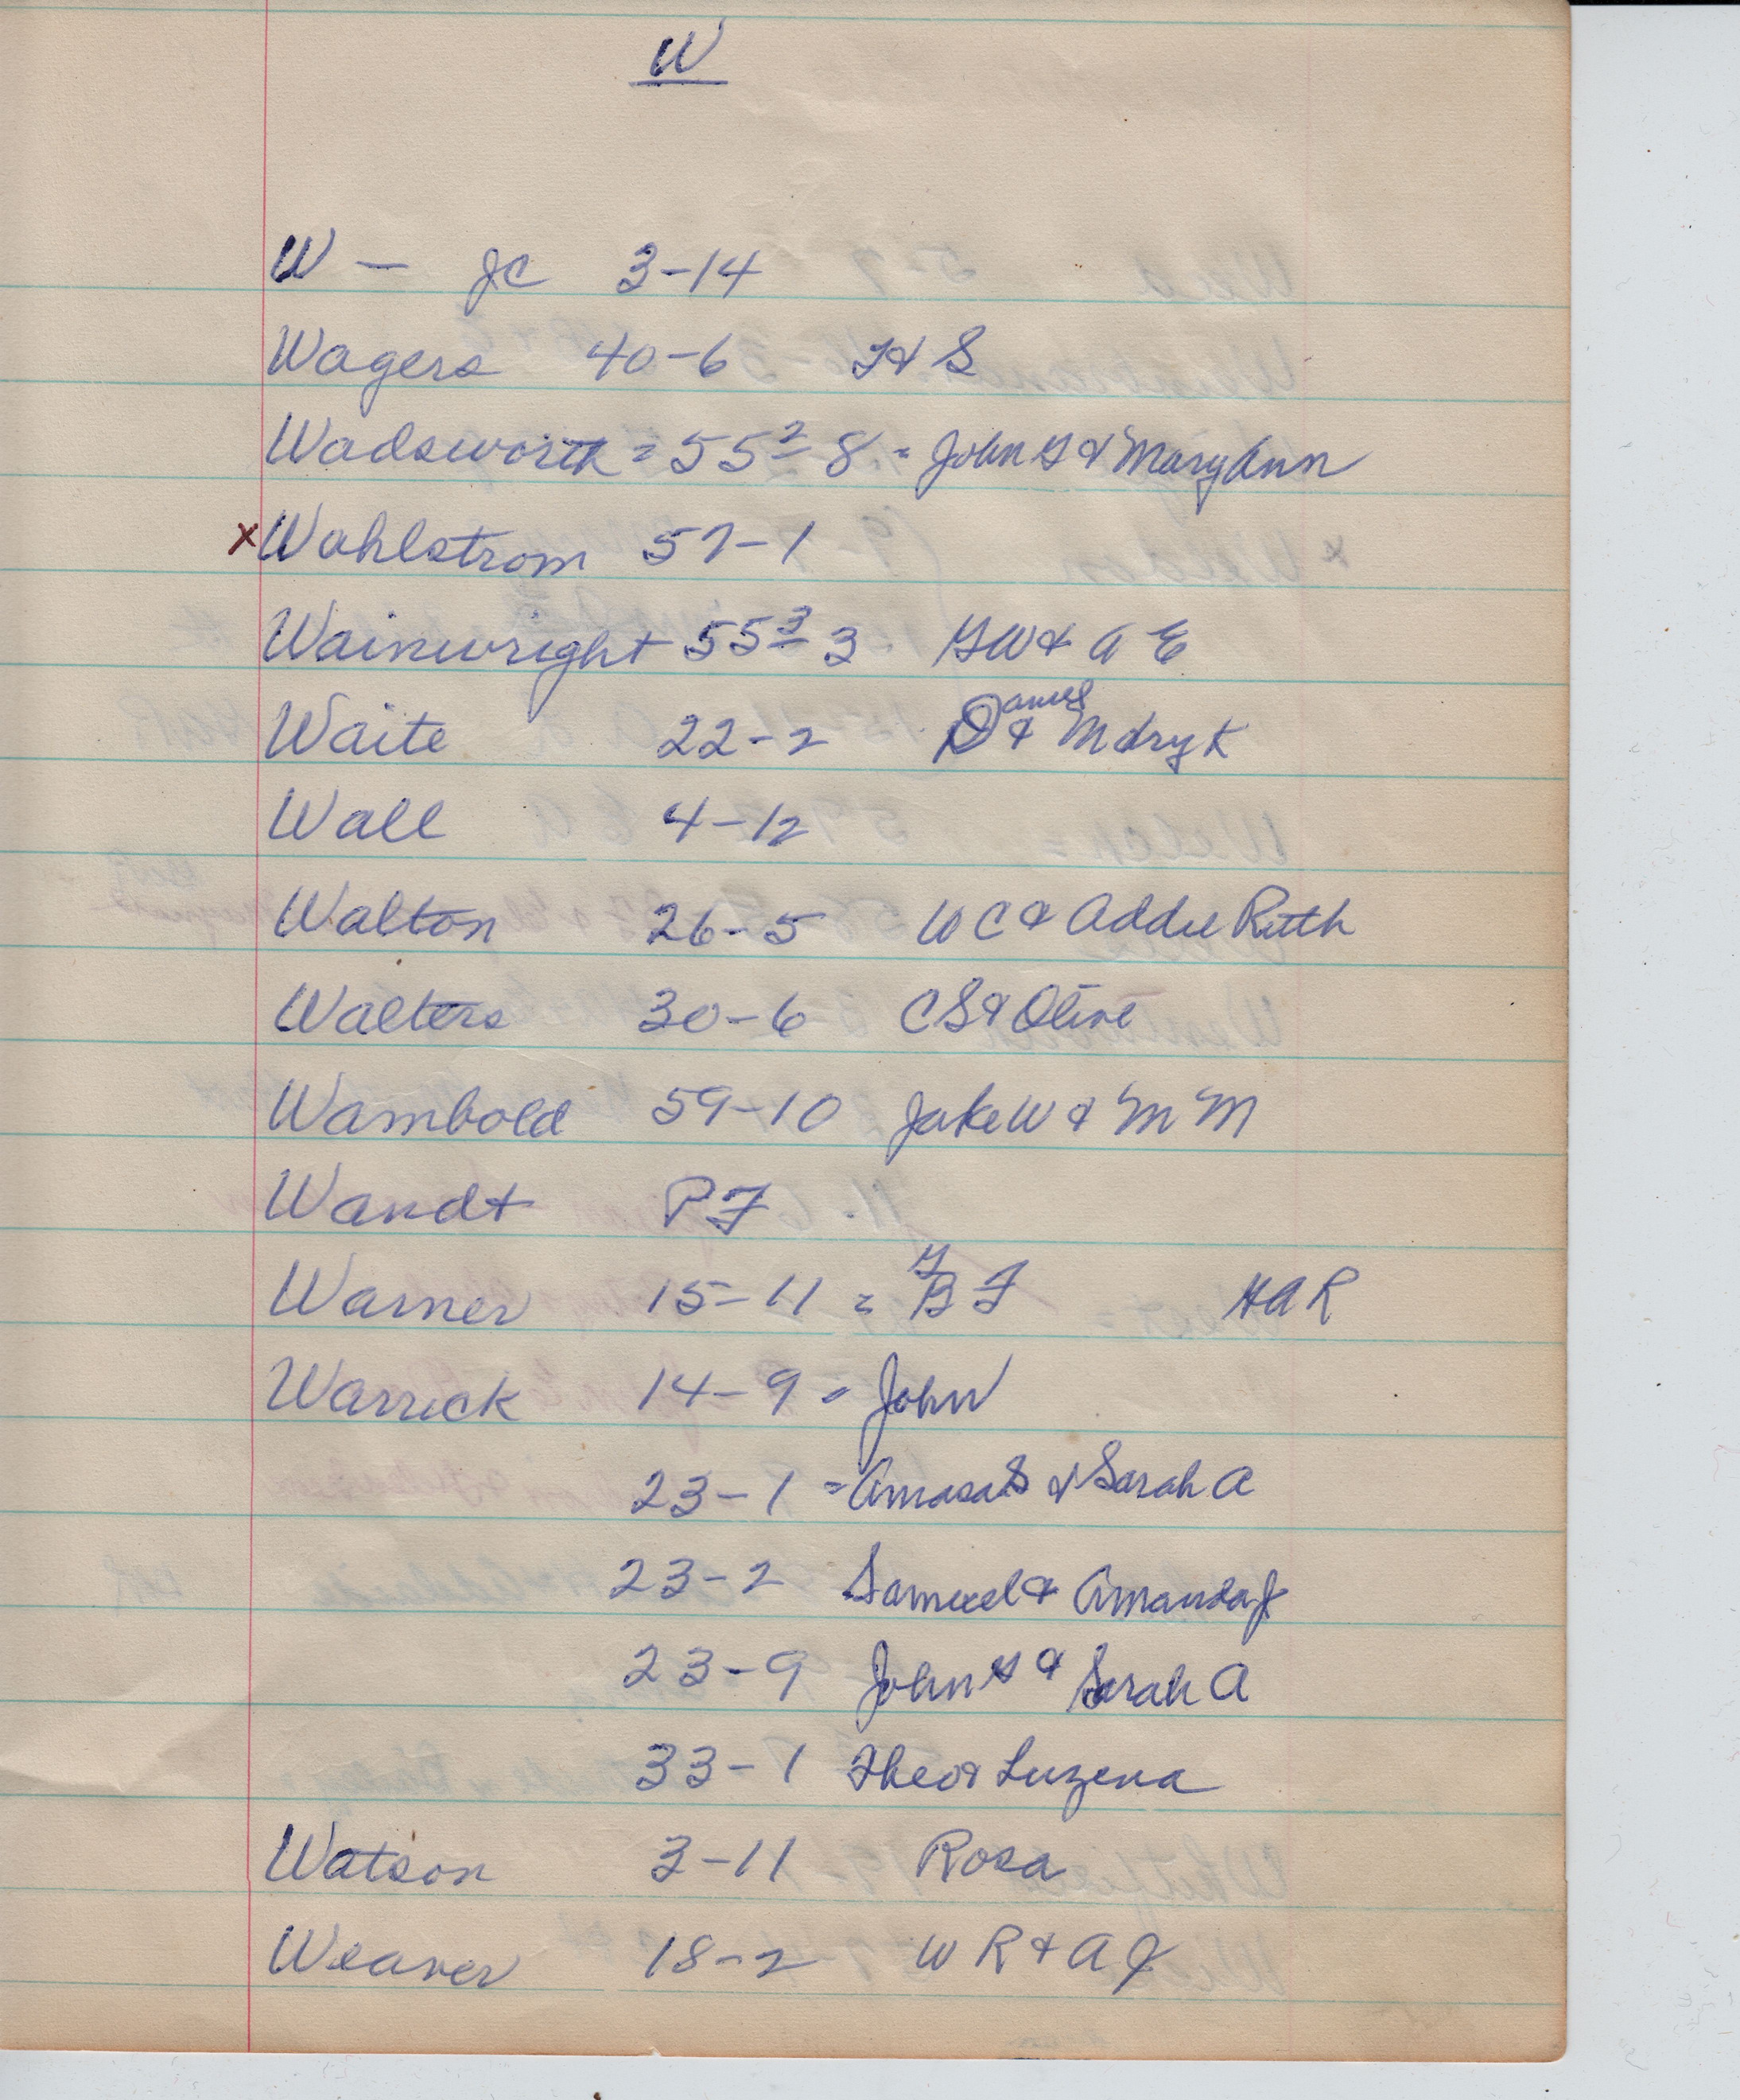 W
W — JC 3-14
Wagers 40-6 H S
Wadsworth = 55 2 - 8 = John G & Mary Ann
x Wahlstrom 57-1
Wainwright 55 3 - 3 GW & A E
Waite 22-2 Daniel & Mary K
Wall 4-12
Walton 26-5 W C & Addie Ruth
Walters 30-6 C S & Olive
Wambold 59-10 Jake W & M M
Wandt P F
Warner 15-11 = B F GAR
Warrick 14-9 = John
23-1 = Amasa S & Sarah A
23-2 Samuel & Amanda J
23-9 John G & Sarah A
33-1 Theo & Luzena
Watson 3-11 Rosa
Weaver 18-2 W R & A J